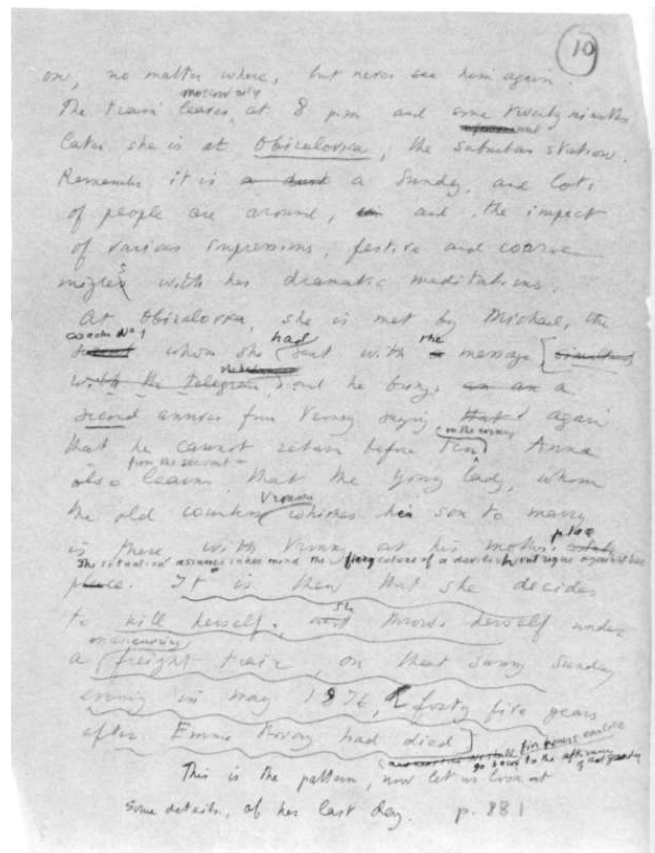 10
on, no matter where, but never see him again.
Moscow
The train leaves at 8 p.m. and some twenty minutes
later she is at Obiralovka, the suburban station.
Remember it is a Sunday, and lots
of people are around, and the impact
of various impressions, festive and coarse
mingles with her dramatic meditations.
At Obiralovka, she is met by Michael, the
coachman had the
whom she sent with message
with the telegram, and he brings a
second answer from Vronsky saying again
that he cannot return before ten in the evening Anna
from the servant
also learns that the young lady, whom
Vronski
the old countess wishes her son to marry
is there with Vronsky at his mother's place
The situation assumes in her mind the fiery colors of a devilish intrigue against her
place. It is then that she decides
to kill herself, she throws herself under
a freight train, on that sunny Sunday
evening in May 1876, forty five years
after Emma Bovary had died
five hours earlier
go back to the afternoon of that Sunday
This is the pattern, now let us look at
some details, of her last day. p. 881